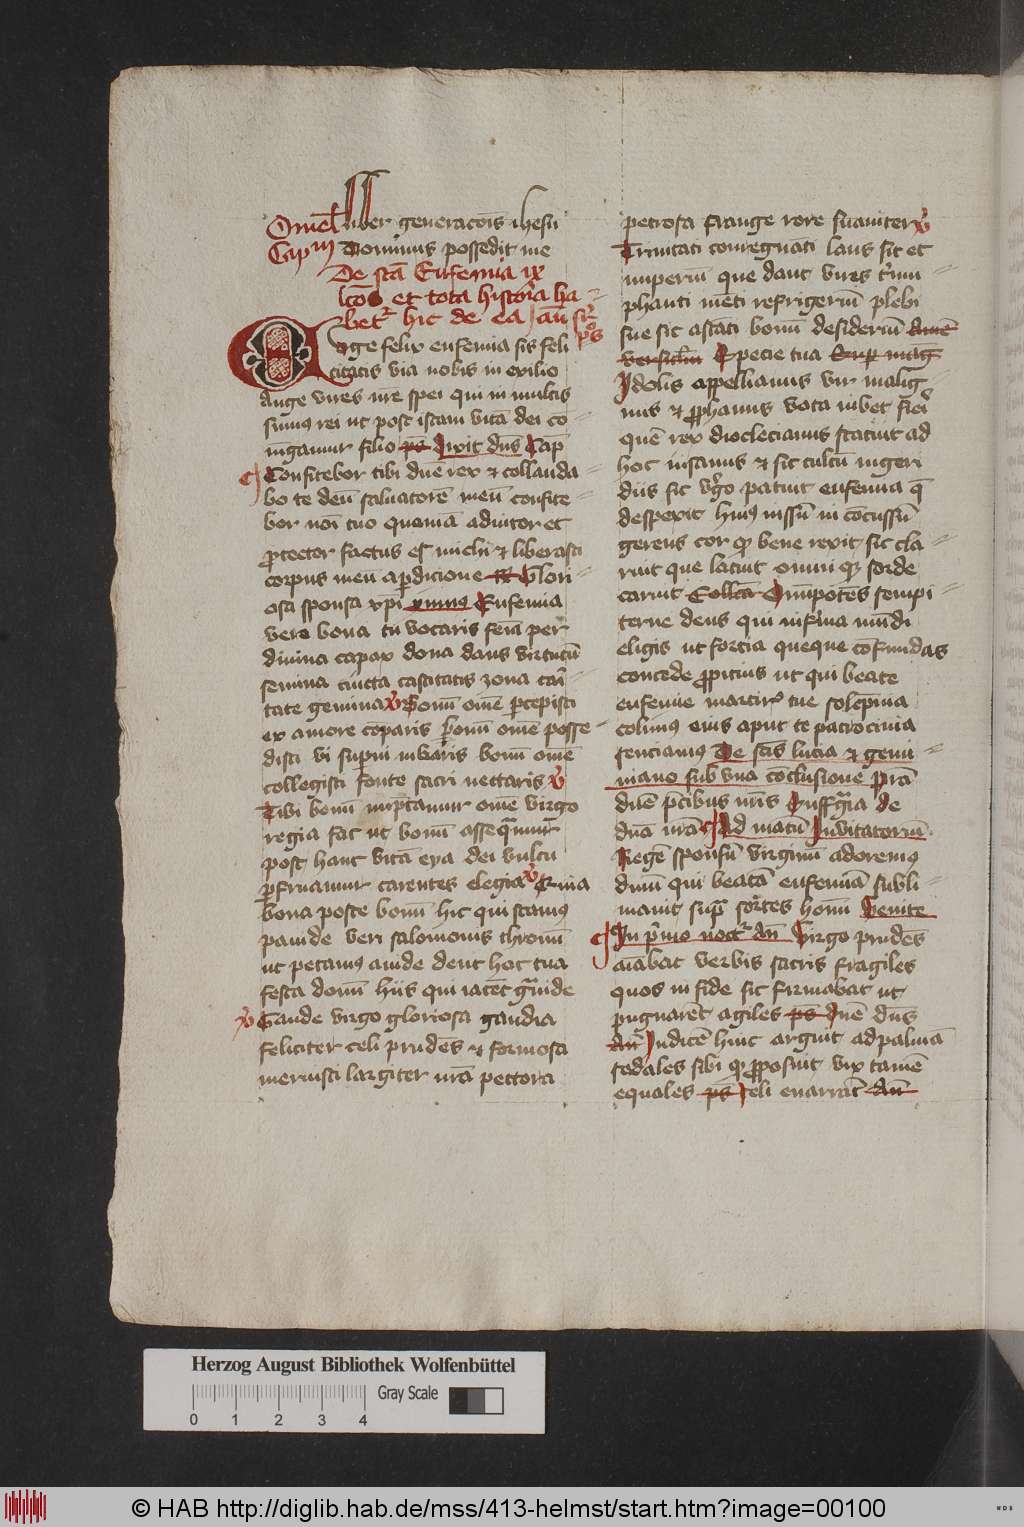 Omel Liber generacōis ihesu
Capm Dominus possedit me
De sctā Eufemia ix
lcōs et tota historia ha
bet̄ hic de ea / an̄ sup̄ p̄os
Auge felix eufemia sis feli
citatis via nobis in exilio
Auge vires nr̄e spei qui in multis
sumus rei ut post istam vitā dei co
nīgamur filio ps̄ Dixit dn̄s Cap̄
Confitebor tibi dn̄e rex & collauda
bo te deū saluatorē meū confite
bor noī tuo quoniā adiutor et
protector factus es michi & liberasti
corpus meū a perdicione R̄ Glori
osa sponsa xp̄i ymnus Eufemia
vere bona tu vocaris femīa per
diuina capax dona dans virtutū
semina cincta castitatis zona cari
tate gemina V̄ Bonū om̄e percepisti
ex amore comparis bonū om̄e posse
disti vi superni muneris bonū om̄e
collegisti fonte sacri nectaris V̄
Tibi bonū imp̄camur om̄e virgo
regia fac ut bonū assequamur
post hanc vitā eya dei vultu
perfruamur carentes elegia V̄ Trina
bona posce bonū hic qui stamus
pauide veri salomonis thronū
ut petamus auide dent hoc tua
festa donū hiis qui iacēt grauide
V̄ Gaude virgo gloriosa gaudia
feliciter celi prudēs & formosa
meruisti largiter nr̄a pectora
petrosa frange rore suauiter V̄
Trinitati conregnati laus sit et
imperiū que dant vires trium
phanti menti refrigeriū plebi
sue sic astāti bonū desideriū Amē
versiclm̄ Specie tua Sup̄ mag
Idolis appellianus vir malig
nus & prophanus vota iubet fieri
quē rex dioclecianus statuit ad
hoc insanus & sic cultū ingeri
diis sic v̄go patuit eufemia q̄
despexit huius iussū in concussū
gerens cor q bene rexit sic cla
ruit que latuit omni q sorde
caruit Collectā Omp̄otēs sempi
terne deus qui infirma mūdi
eligis ut fortia queque confundas
concede propitius ut qui beate
eufemie martiris tue solēpnia
colimus eius aput te patrocinia
senciamus De sctīs lucia & gemi
niano sub vna conclusione p̄rā
dn̄e p̄cibus nr̄is Suffragia de
dn̄ā nr̄ā Ad matū Inuitatoriū
Regē sponsū virginū adoremus
dn̄m qui beatā eufemiā subli
mauit sup̄ sortes homū Venite
In primo noct̄ an̄ Virgo prudēs
aiabat verbis sacris fragiles
quos in fide sic firmabat ut
pugnarēt agiles ps̄ Dn̄e dn̄s
an̄ Iudicē hinc arguit ad palmā
sodales sibi q proposuit vix tamē
equales ps̄ Celi enarrāt An̄
Herzog August Bibliothek Wolfenbüttel
Gray Scale
0 1 2 3 4
© HAB http://diglib.hab.de/mss/413-helmst/start.htm?image=00100